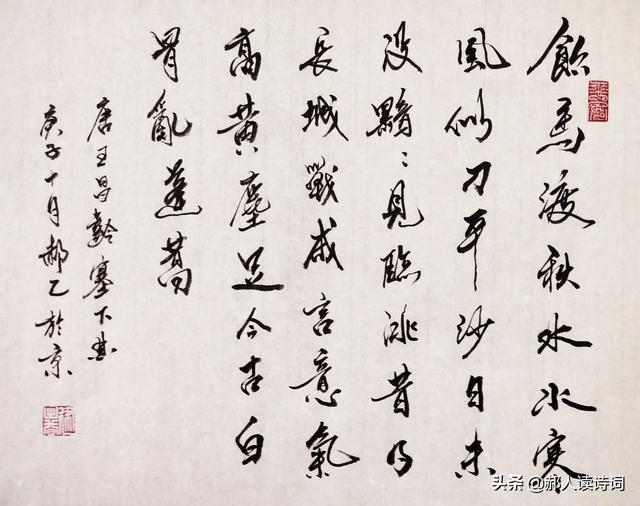 飲馬渡秋水水寒
風似刀平沙日未
没黯〻見臨洮昔日
長城戰咸言意氣
高黄塵足今古白
骨亂蓬蒿
唐王昌齡塞下曲
庚子十月郝乙於京
头条 @郝人读诗词